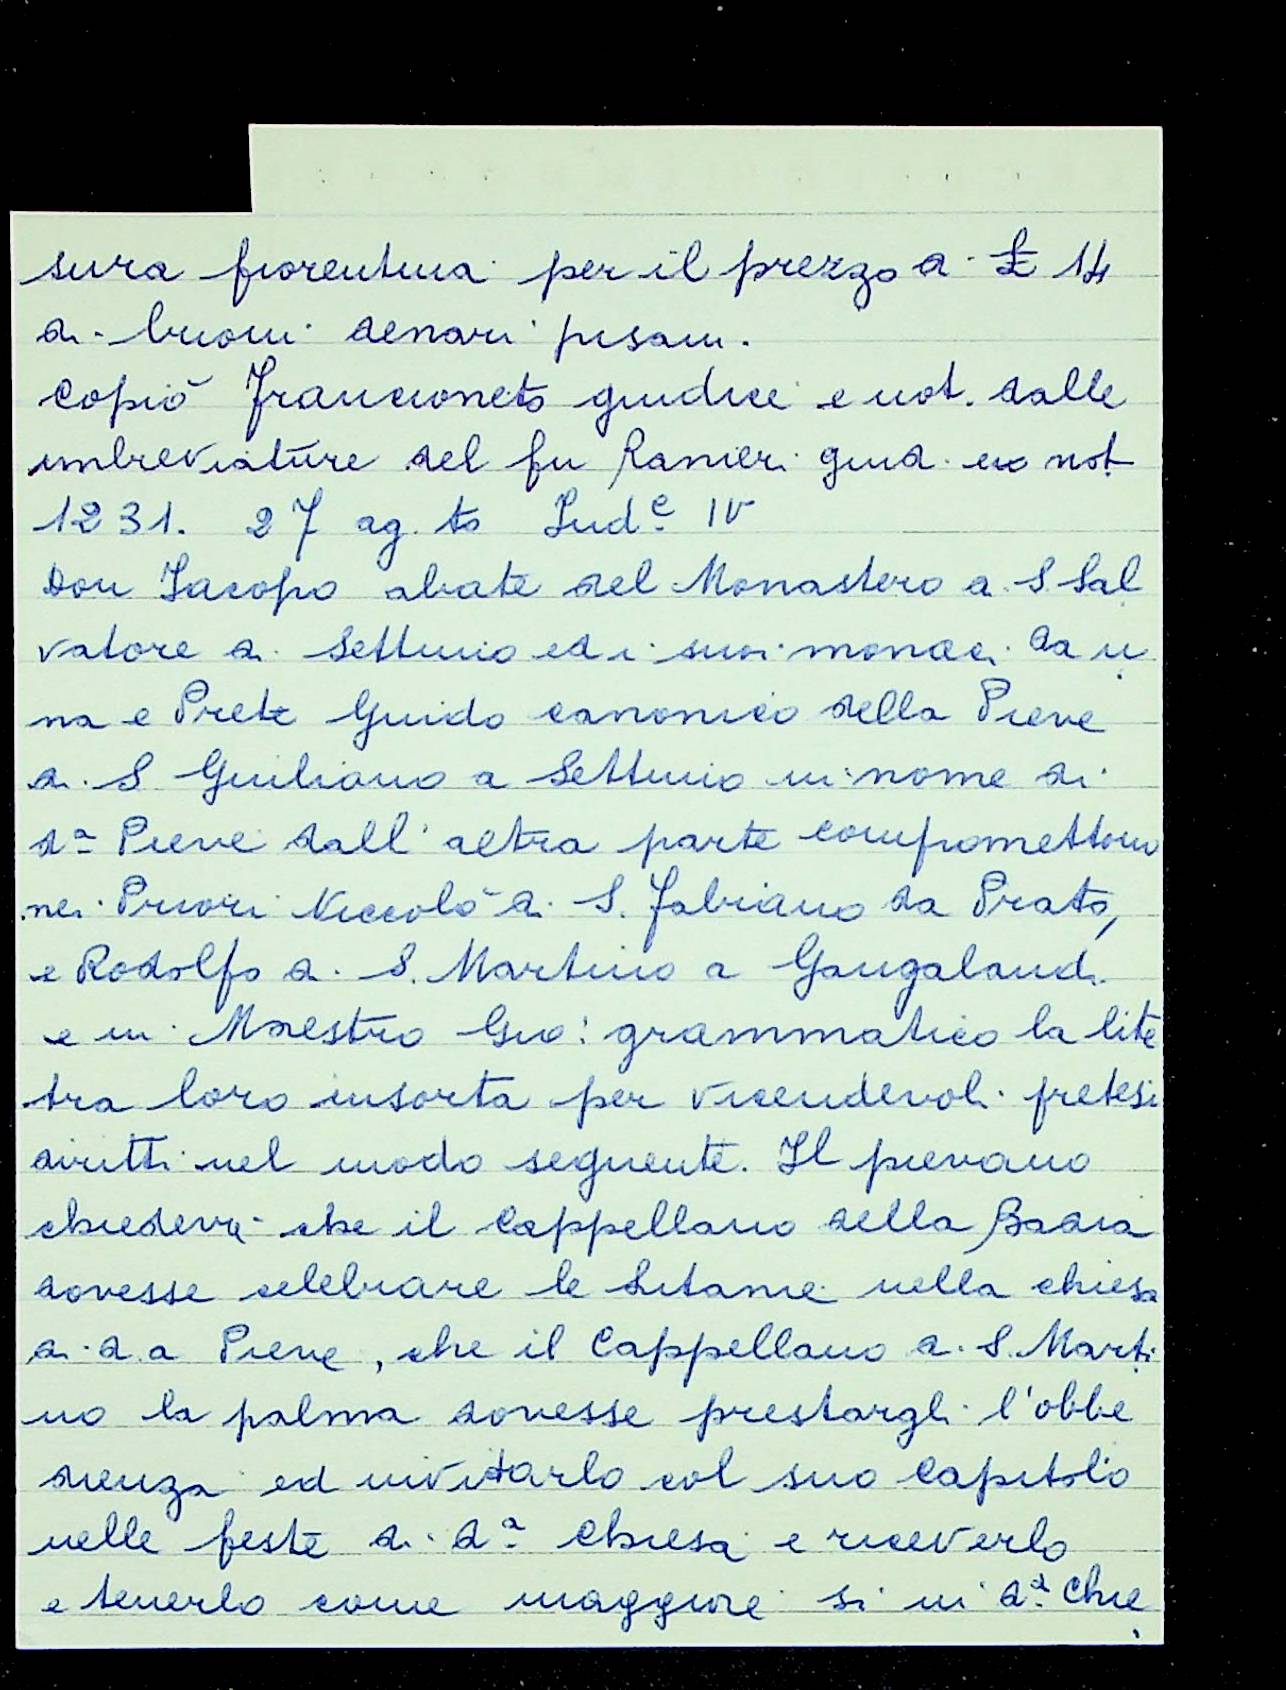 sura fiorentina per il prezzo di £ 14
di buoni denari pisani.
Copiò Francioneto giudice e not. dalle
imbreviature del fu Ranieri giud. e not
1231. 27 ag.to Ind.e IV
Don Iacopo abate del Monastero di S. Sal
vatore di Settimo ed i suoi monaci da u
na e Prete Guido canonico della Pieve
di S Giuliano a Settimo in nome di
d.a Pieve dall'altra parte compromettono
nei Priori Niccolò di S. Fabiano da Prato,
e Rodolfo di S. Martino a Gangalandi
e in Maestro Gio: grammatico la lite
tra loro insorta per vicendevoli pretesi
diritti nel modo seguente. Il pievano
chiedeva che il Cappellano della Badia
dovesse celebrare le Litanie nella chiesa
di d.a Pieve, che il Cappellano di S. Marti
no la palma dovesse prestargli l'obbe
dienza ed invitarlo col suo Capitolo
nelle feste di d.a Chiesa e riceverlo
e tenerlo come maggiore si in d.a Chie